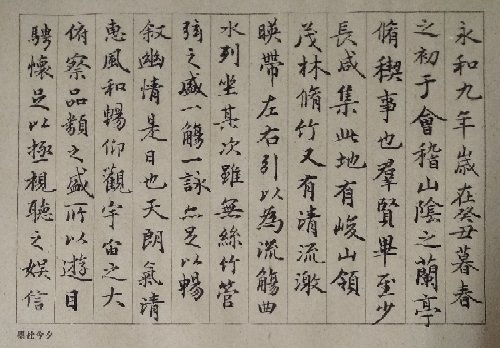 永和九年歲在癸丑暮春
之初于會稽山陰之蘭亭
脩稧事也羣賢畢至少
長咸集此地有峻山領
茂林脩竹又有清流激
暎帶左右引以為流觴曲
水列坐其次雖無絲竹管
弦之盛一觴一詠亦足以暢
叙幽情是日也天朗氣清
惠風和暢仰觀宇宙之大
俯察品類之盛所以遊目
騁懷足以極視聽之娛信